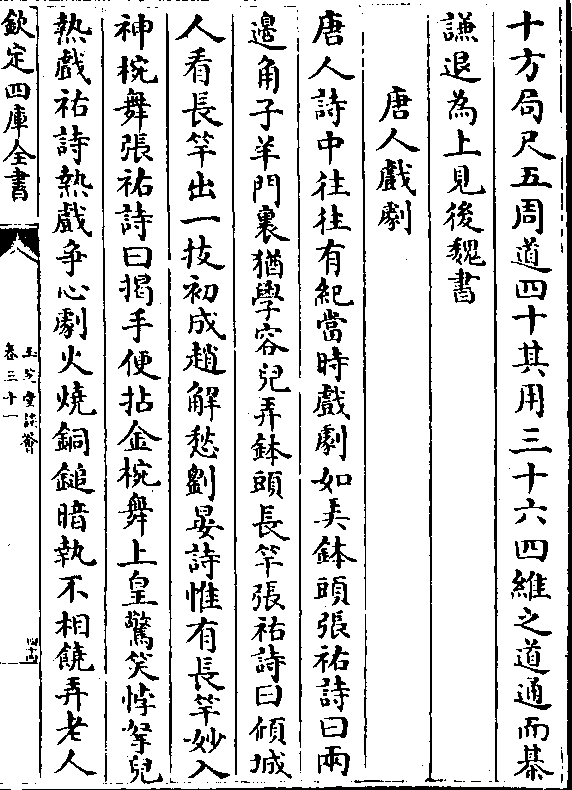 十方局尺五周道四十其用三十六四維之道通而綦
謙退為上見後魏書
唐人戲劇
唐人詩中往往有紀當時戲劇如弄鉢頭張祐詩曰兩
邊角子羊門裏猶學容兒弄鉢頭長竿張祐詩曰傾城
人看長竿出一技初成趙解愁劉晏詩惟有長竿妙入
神椀舞張祐詩曰揭手便拈金椀舞上皇驚笑悖拏兒
熱戲祐詩熱戲爭心劇火燒銅鎚暗執不相饒弄老人
欽定四庫全書
玉芝堂談薈
卷三十一